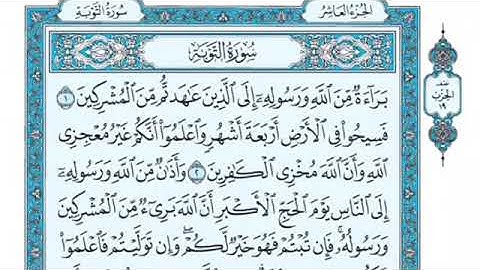 الجُزْءُ العَاشِرُ
سُورَةُ التَّوْبَةِ
سُورَةُ التَّوْبَةِ
بَرَآءَةٌ مِّنَ ٱللَّهِ وَرَسُولِهِۦٓ إِلَى ٱلَّذِينَ عَٰهَدتُّم مِّنَ ٱلْمُشْرِكِينَ ١
فَسِيحُوا۟ فِى ٱلْأَرْضِ أَرْبَعَةَ أَشْهُرٍ وَٱعْلَمُوٓا۟ أَنَّكُمْ غَيْرُ مُعْجِزِى
ٱللَّهِ وَأَنَّ ٱللَّهَ مُخْزِى ٱلْكَٰفِرِينَ ٢ وَأَذَٰنٌ مِّنَ ٱللَّهِ وَرَسُولِهِۦٓ
إِلَى ٱلنَّاسِ يَوْمَ ٱلْحَجِّ ٱلْأَكْبَرِ أَنَّ ٱللَّهَ بَرِىٓءٌ مِّنَ ٱلْمُشْرِكِينَ
وَرَسُولُهُۥ فَإِن تُبْتُمْ فَهُوَ خَيْرٌ لَّكُمْ وَإِن تَوَلَّيْتُمْ فَٱعْلَمُوٓا۟
نصف
الحزب
١٩